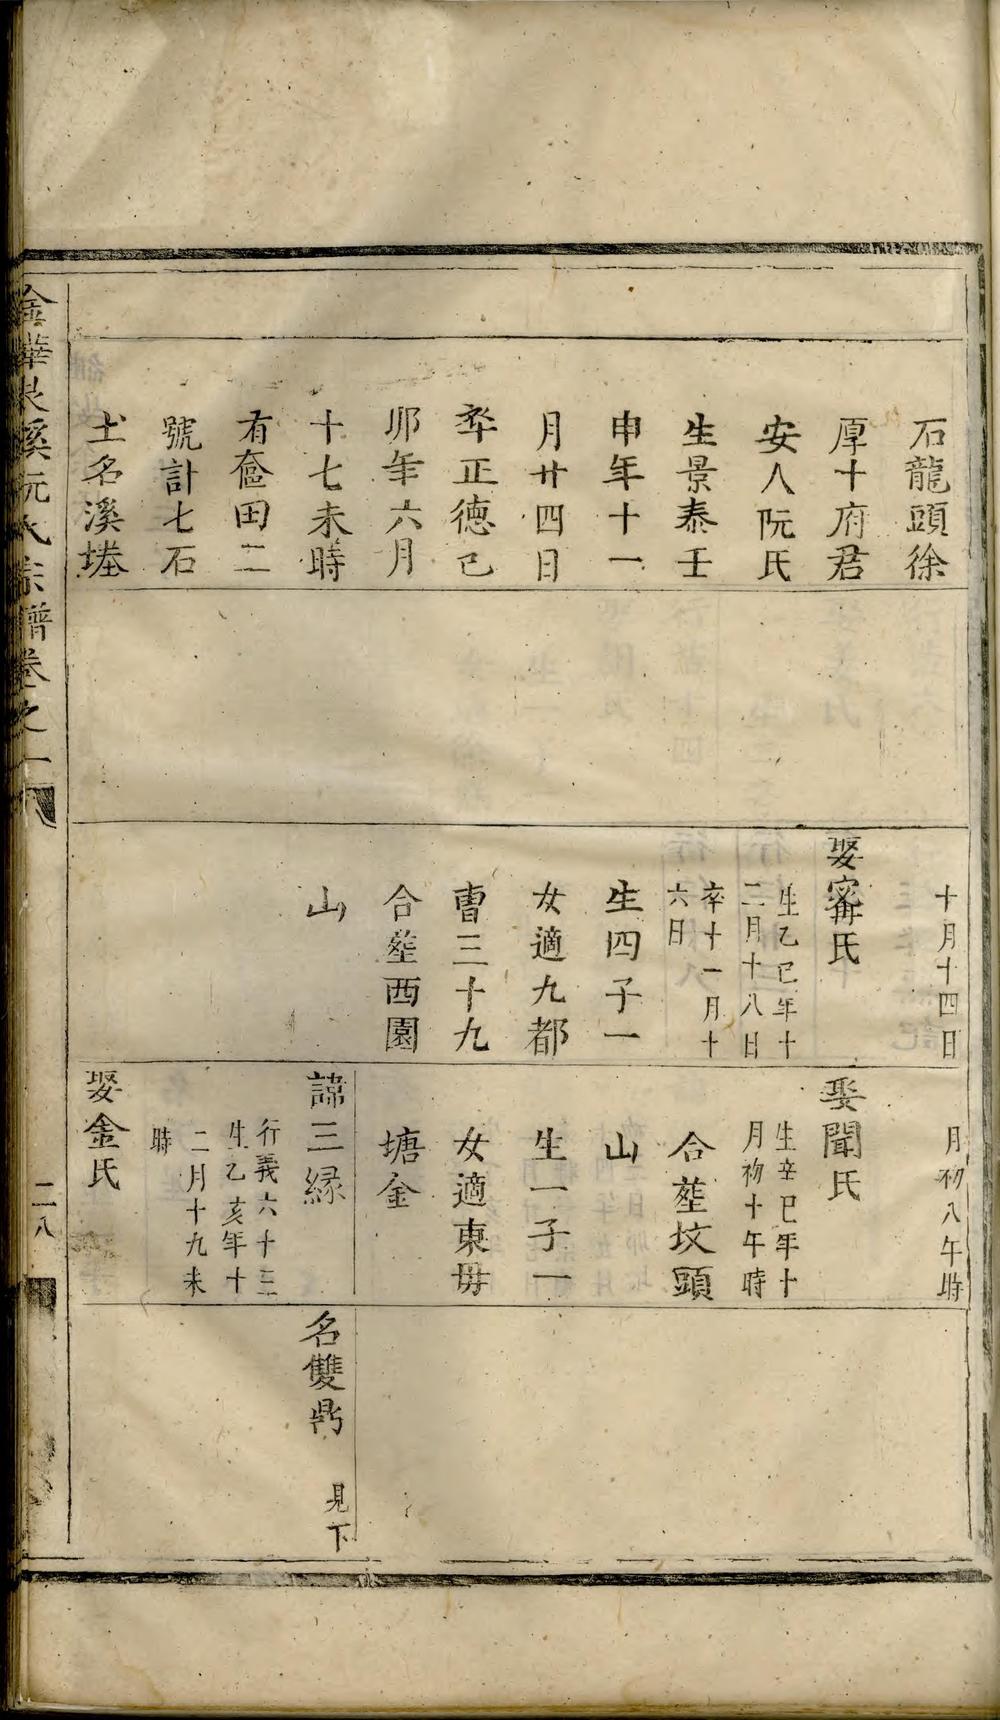 石龍頭徐
厚十府君
安人阮氏
生景泰壬
申年十一
月廿四日
卒正德己
卯年六月
十七未時
有奩田二
號計七石
土名溪塟
十月十四日
娶甯氏
生乙巳年十
二月十八日
卒十一月十
六日
生四子一
女適九都
曹三十九
合塟西園
山
月初八午時
娶聞氏
生辛巳年十
月初十午時
合塟坟頭
山
生一子一
女適東毋
塘金
諱三緣
行義六十三
生乙亥年十
二月十九未
時
娶金氏
名雙鼎
見下
金華良溪阮氏宗譜卷之一
二八